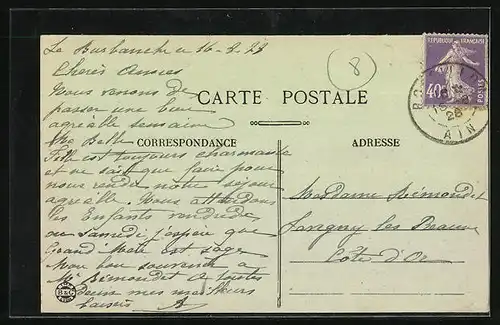 Le Burbanche 16-8-28
Chères Amies
Nous venons de
passer une bien
agréable semaine
Belle
Fille est toujours charmante
et ne sait que faire pour
nous rendre notre séjour
agréable. Nous attendons
les Enfants vendredi
ou Samedi j'espère que
est sage
Mon bon souvenir à
Mr Rémondet à toutes
deux mes meilleurs
baisers
B&G
8
CARTE POSTALE
CORRESPONDANCE
ADRESSE
REPUBLIQUE FRANÇAISE
40c
POSTES
28
AIN
Madame Rémondet
Savigny les Beaune
Côte d'Or